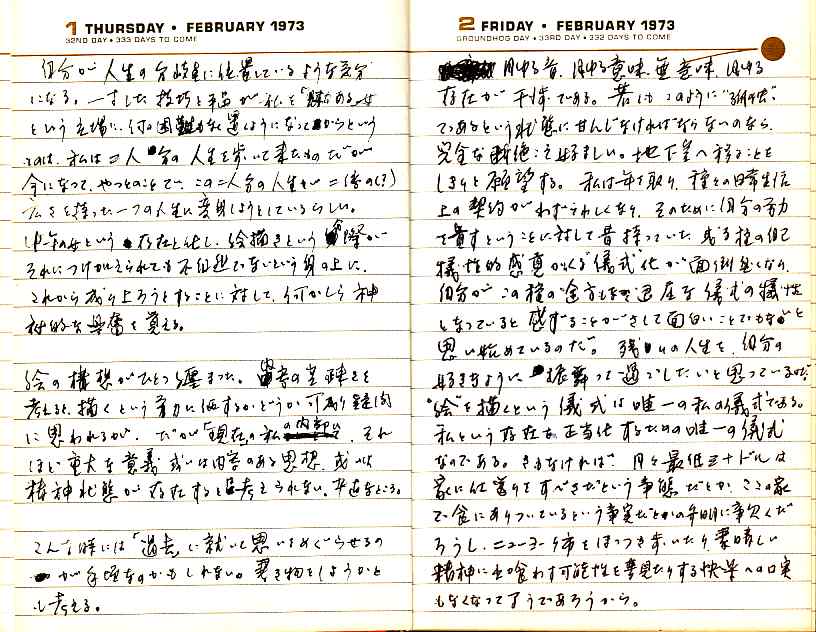 1 THURSDAY • FEBRUARY 1973
32ND DAY • 333 DAYS TO COME
自分が人生の分岐点に位置しているような気分
になる。一寸した技巧と手品が私を
という立場に、何の困難もなく置くようになってからという
ものは、私は二人分の人生を歩いて来たものだが
今になって、やっとのことで、この二人分の人生が二倍の(?)
広さを持った一つの人生に変身しようとしているらしい。
中年の女という存在と化し、絵描きという
それにつけ加えられても不自然でないという身の上に、
これから成り上ろうとすることに対して、何かしら神
秘的な興奮を覚える。
絵の構想がひとつ纏まった。
考えると、描くという努力に価するかどうか可成り疑問
に思われるが、だが「現在の私の内部に、それ
ほど重大な意義或いは内容のある思想、或いは
精神状態が存在するとは考えられない。平直なところ。
こんな時には「過去」に就いて思いをめぐらせるの
が手頃なのかもしれない。書き物をしようかと
も考える。
2 FRIDAY • FEBRUARY 1973
GROUNDHOG DAY • 33RD DAY • 332 DAYS TO COME
凡ゆる音、凡ゆる意味、無意味、凡ゆる
存在が干渉である。若しもこのように
であるという状態に甘んじなければならないのなら、
完全な断絶こそ好ましい。地下室へ移ることを
しきりと願望する。私は年を取り、種々の日常生活
上の契約がわずらわしくなり、そのために自分の努力
を費すということに対して昔持っていた、或る種の自己
犠牲的感覚がかくる儀式化が面倒臭くなり、
自分がこの種の途方もなき退屈な儀式の犠牲
となっていると感ずることがさして面白いことでもないと
思い始めているのだ。残りの人生を、自分の
好きなように振舞って過ごしたいと思っているのだ。
"絵"を描くという儀式は唯一の私の儀式である。
私という存在を正当化するための唯一の儀式
なのである。さもなければ、月々最低三十ドルは
家に仕送りをすべきだという事態だとか、ここの家
で食にありついているという事実だとかの弁明に事欠くだ
ろうし、ニューヨーク市をほっつき歩いたり、素晴しい
精神に出喰わす可能性を夢見たりする快楽への口実
もなくなって了うであろうから。